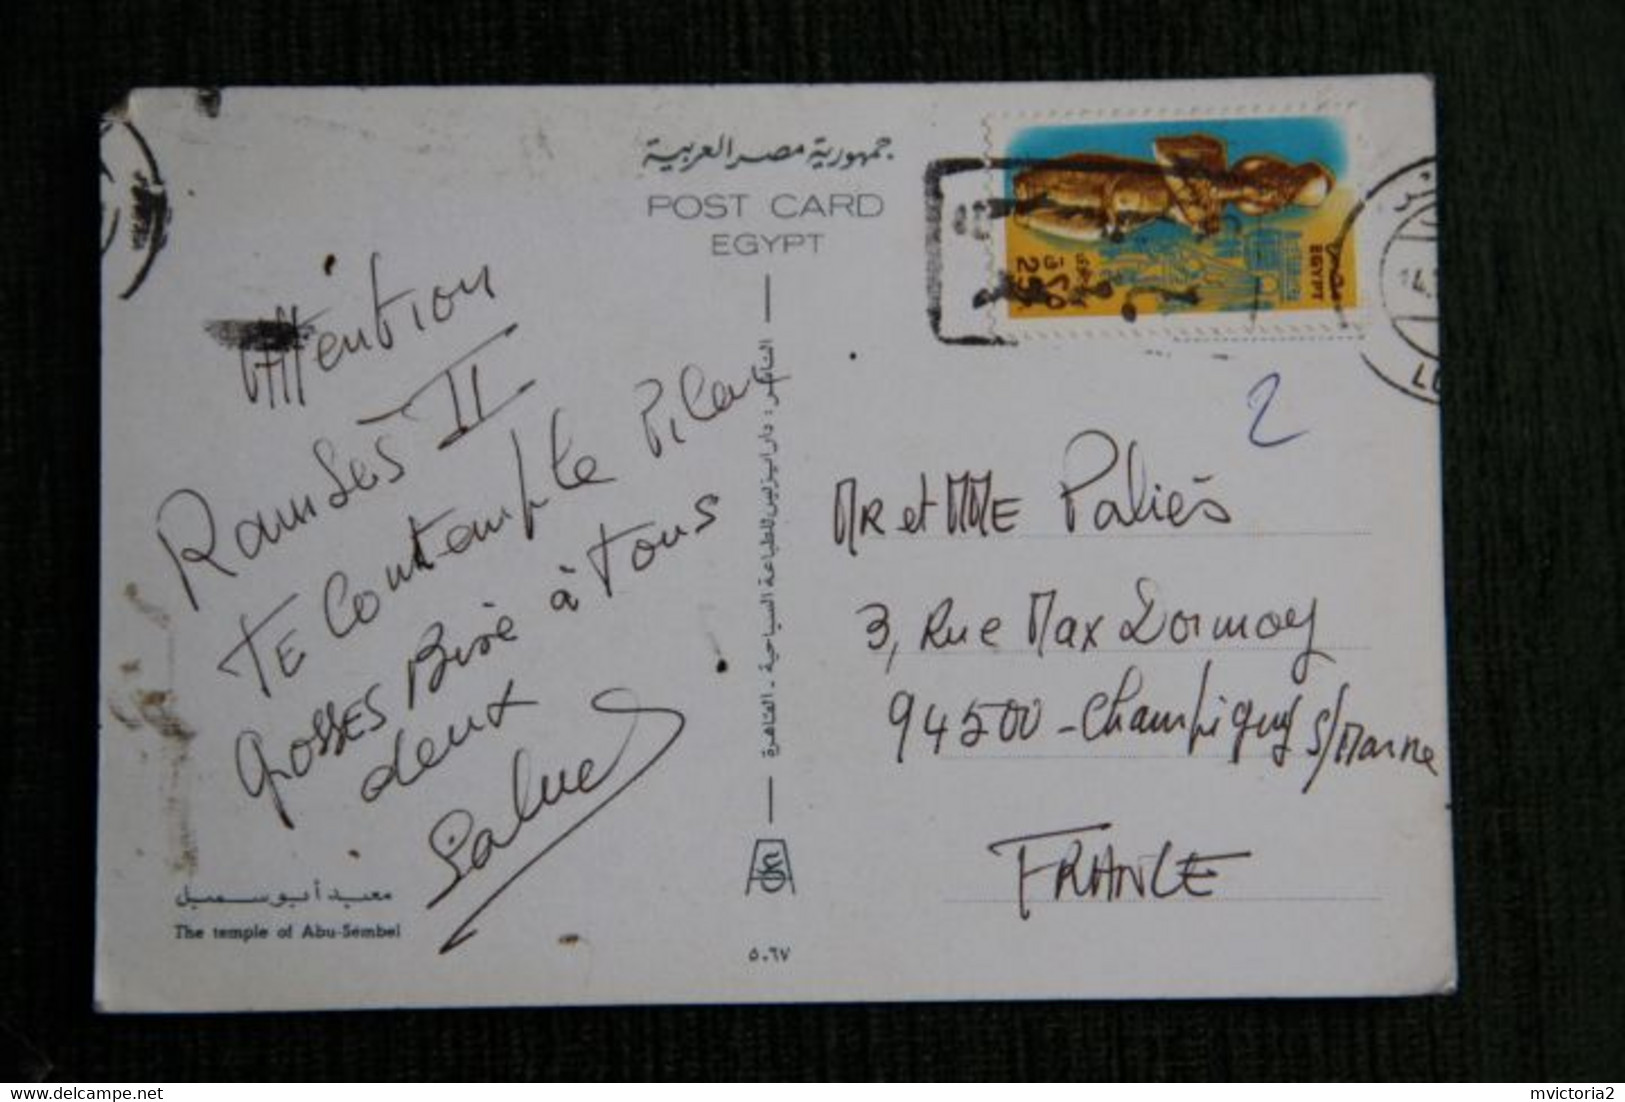 جمهورية مصر العربية
POST CARD
EGYPT
Attention
Ramsès II
TE Contemple Pilar
GROSSES Bise à tous
deux
معبد أبو سمبل
The temple of Abu-Sembel
الناشر : دار ايزيس للطباعة السياحية - القاهرة
٥٠٦٧
EGYPT
مصر
25
٢٥
2
MR et MME Paliès
3, Rue Max Dormoy
94500 - Champigny s/Marne
FRANCE
mvictoria2